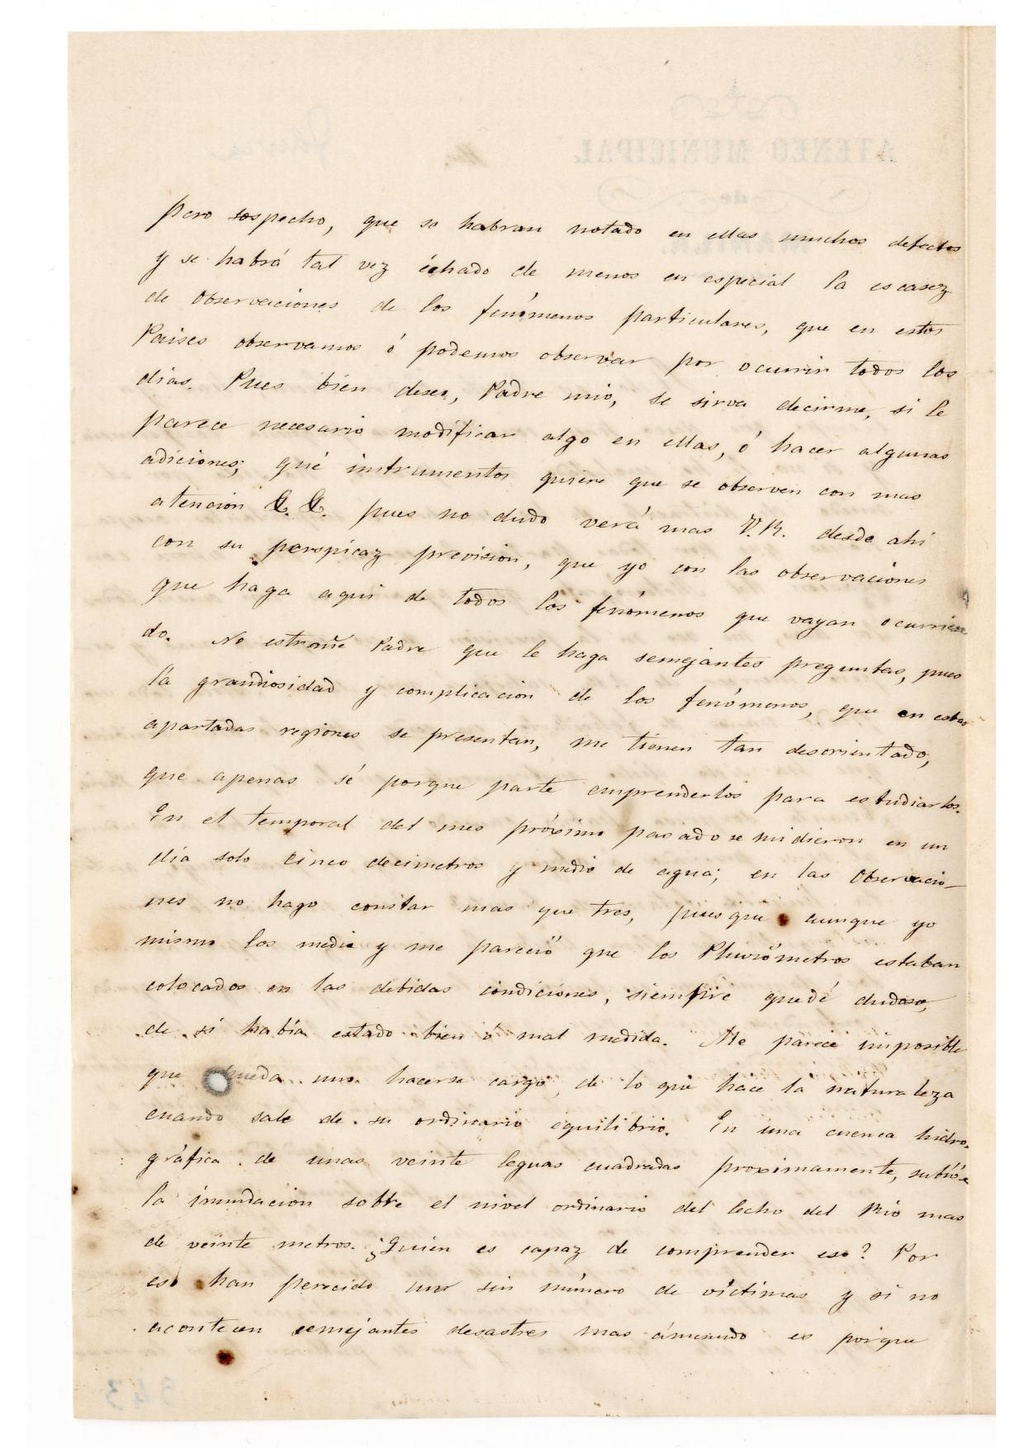 pero sospecho, que se habran notado en ellas muchos defectos
y se habrá tal vez échado de menos en especial la escasez
de Observaciones de los fenómenos particulares, que en estos
Paises observamos ó podemos observar por ocurrir todos los
dias. Pues bien deseo, Padre mio, se sirva decirme, si le
parece necesario modificar algo en ellas, ó hacer algunas
adiciones; qué instrumentos quiere que se observen con mas
atencion &. &. pues no dudo verá mas V.R. desde ahi
con su perspicaz prevision, que yo con las observaciones
que haga aqui de todos los fenómenos que vayan ocurrien
do. No estrañe Padre que le haga semejantes preguntas, pues
la grandiosidad y complicacion de los fenómenos, que en estas
apartadas regiones se presentan, me tienen tan desorientado,
que apenas sé porque parte emprenderlos para estudiarlos.
En el temporal del mes próximo pasado se midieron en un
dia solo cinco decimetros y medio de agua; en las Observacio-
nes no hago constar mas que tres, pues que aunque yo
mismo los medi y me pareció que los Pluviómetros estaban
colocados en las debidas condiciones, siempre quedé dudoso,
de si habia estado bien ó mal medida. Me parece imposible
que pueda uno hacerse cargo de lo que hace la naturaleza
cuando sale de su ordinario equilibrio. En una cuenca hidro-
gráfica de unas veinte leguas cuadradas proximamente, subió
la inundacion sobre el nivel ordinario del lecho del Rio mas
de veinte metros. ¿Quién es capaz de comprender eso? Por
eso han perecido un sin número de victimas y si no
acontecen semejantes desastres mas ámenudo es porque
ATENEO MUNICIPAL
de
343